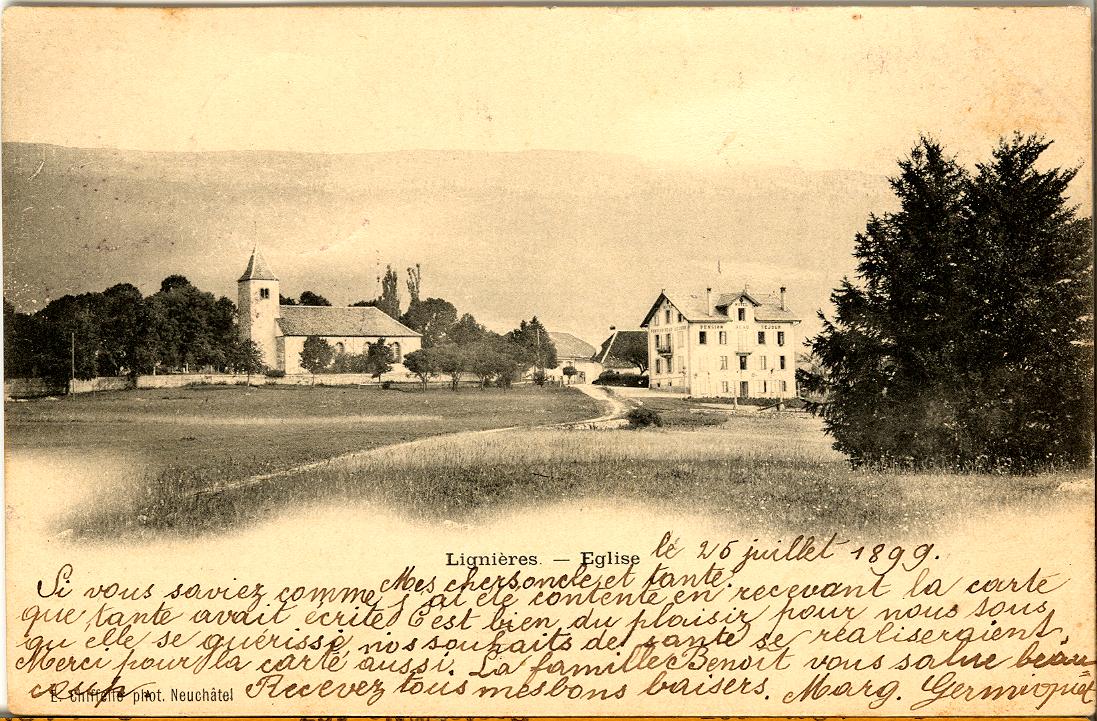 PENSION BEAU SEJOUR
Lignières. — Eglise
le 25 juillet 1899.
Mes chers oncle et tante
Si vous saviez comme j'ai été contente en recevant la carte
que tante avait écrite. C'est bien du plaisir pour nous tous,
qu'elle se guérisse, nos souhaits de santé se réaliseraient.
Merci pour la carte aussi. La famille Benoit vous salue beau
coup. Recevez tous mes bons baisers. Marg. Germiquet
E. Chiffelle phot. Neuchâtel